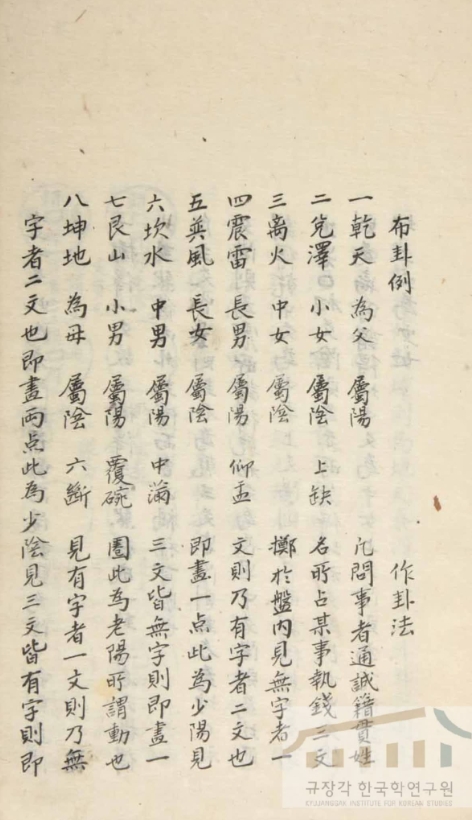 布卦例 作卦法
一乾天 為父 屬陽 凡問事者通誠籍貫姓
二兌澤 小女 屬陰 上缺 名所占某事執錢三文
三离火 中女 屬陰 擲於盤內見無字者一
四震雷 長男 屬陽 仰盂 文則乃有字者二文也
五巽風 長女 屬陰 即畫一点此為少陽見
六坎水 中男 屬陽 中滿 三文皆無字則即畫一
七艮山 小男 屬陽 覆碗 圈此為老陽所謂動也
八坤地 為母 屬陰 六斷 見有字者一文則乃無
字者二文也即畫兩点此為少陰見三文皆有字則即
규장각 한국학연구원
KYUJANGGAK INSTITUTE FOR KOREAN STUDIES